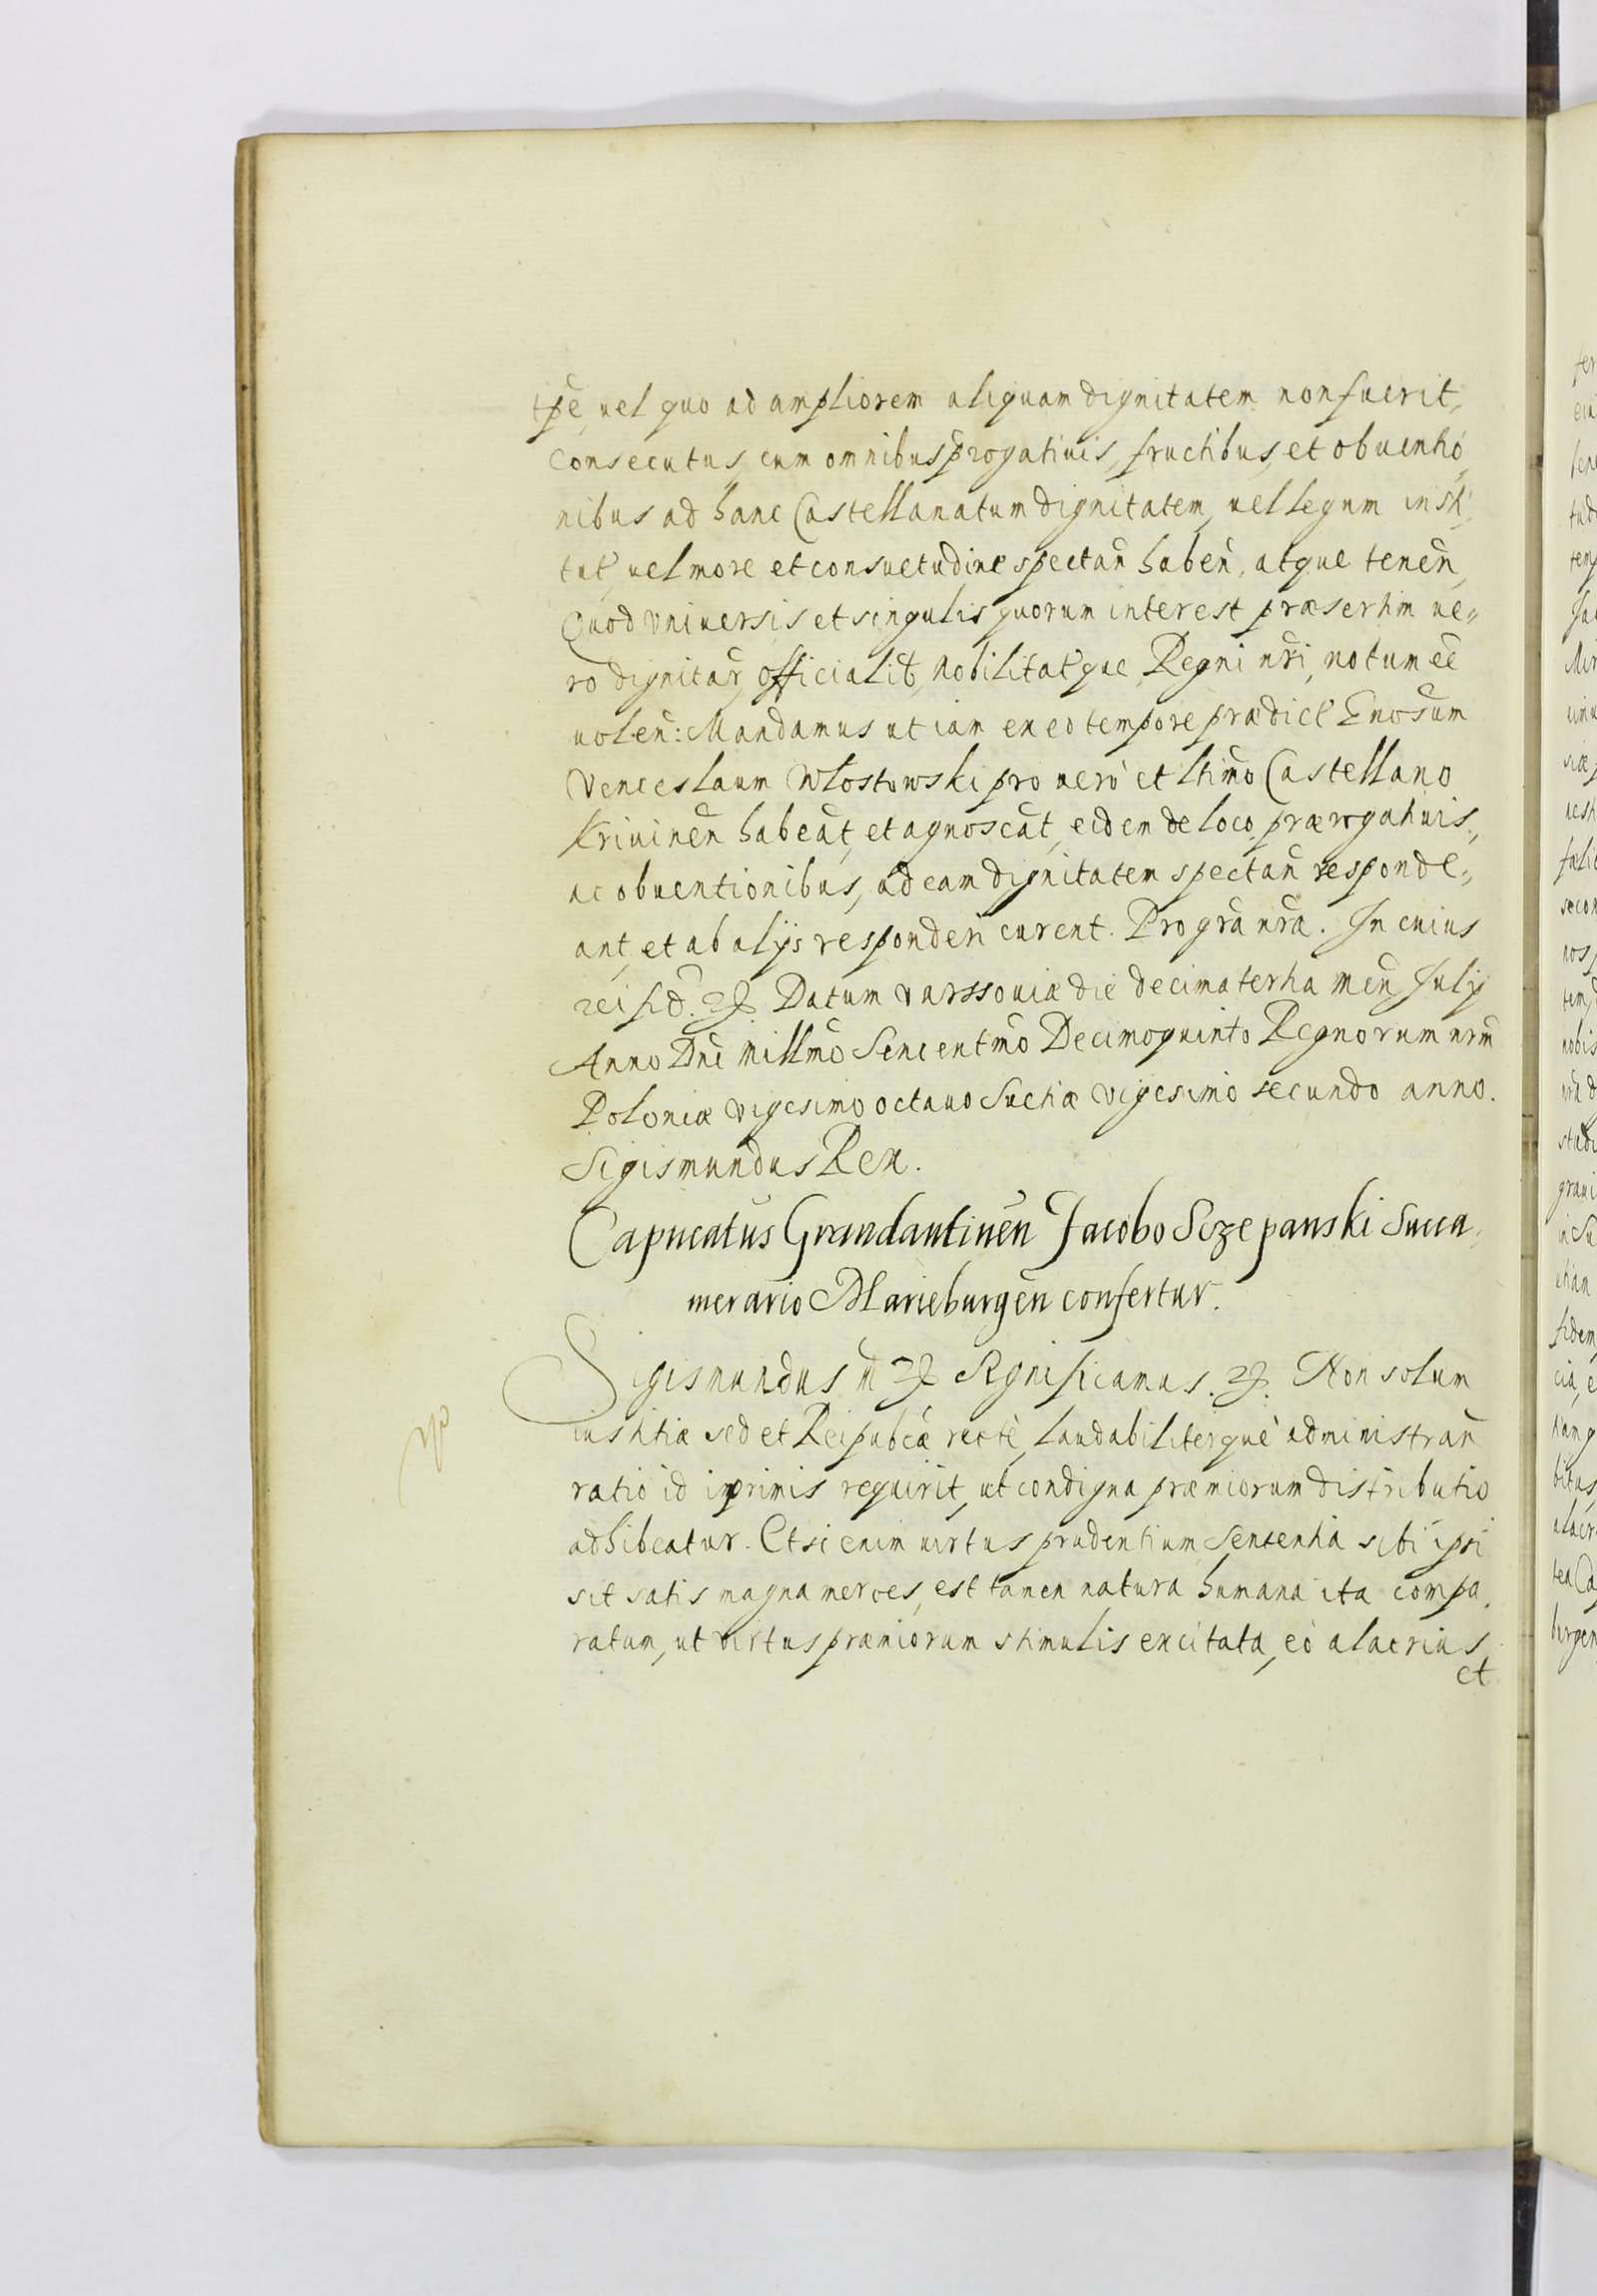 ipē, uel quo ad ampliorem aliquam dignitatem non fuerit,
consecutus, cum omnibus p̄rogatiuis, fructibus, et obuentio,
nibus ad hanc Castellanatum dignitatem, uel legum insti,
tut, uel more et consuetudine spectan̄ haben̄, atque tenen̄,
Quod Vniuersis et singulis quorum interest præsertim ue,,
ro dignitar̄, officialib, nobilitatque Regni nr̄i, notum eē
uolen̄: Mandamus ut iam ex eo tempore prædict Gnosum
Venceslaum Wlostowski pro uerò et ltimo Castellano
Kriuinen̄ habeāt, et agnoscāt, eidem de loco prærogatiuis,,
ac obuentionibus, ad eam dignitatem spectan̄ responde,,
ant, et ab alijs responderi curent. Pro gra nr̄a. In cuius
rei fid. ꝛꝭ. Datum Varssouiæ die decima tertia men̄ Julij
Anno Dnī millmō Sexcentmō Decimoquinto Regnorum nrm̄
Poloniæ Vigesimo octauo Suetiæ Vigesimo secundo anno.
Sigismundus Rex.
Capneatus Graudantinen̄ Jacobo Sczepanski Succa,
merario Marieburgen̄ confertur.
Sigismundus m ꝛꝭ Significamus. ꝛꝭ. Non solum
iustitiæ sed et Reipubcæ rectè, laudabiliterquè administran̄
ratio id inprimis requirit, ut condigna præmiorum distributio
adhibeatur. Etsi enim uirtus prudentium sententia sibi ipsi
sit satis magna merces, est tamen natura humana ita compa,
ratum, ut Virtus præmiorum stimulis excitata, eò alacrius,
et